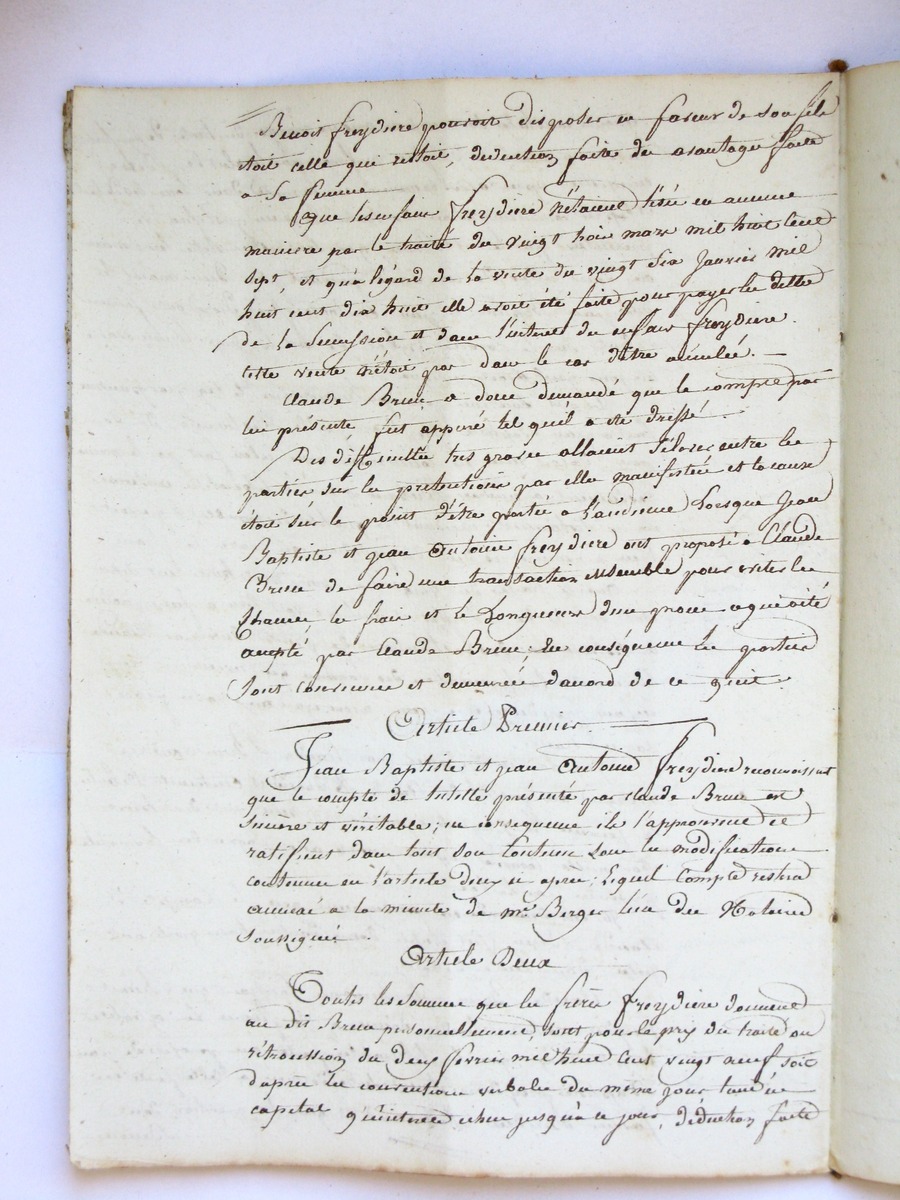 Benoit freydiere pouvoit disposer en faveur de son fils
étoit celle qui restoit, deduction faite des avantages faits
a sa femme
Que les enfans freydiere n'étaient lésés en aucune
maniere par le traité du vingt trois mars mil huit cent
sept, et qu'a légard de la vente du vingt six Janvier mil
huit cent dix huit elle avoit été faite pour payer les dettes
de la succession et dans l'interet des enfans freydiere.
cette vente n'étoit pas dans le cas d'être annulée. —
Claude Brun a donc demandé que le compte par
lui présenté fut appuré tel qu'il a été dressé.
Des difficultés tres graves allaient s'élever entre les
parties sur les pretentions par elles manifestées et la cause
étoit sur le point d'être portée a l'audience lorsque Jean
Baptiste et jean antoine freydiere ont proposé a Claude
Brun de faire une transaction ensemble pour eviter les
chances, les frais et les longueurs d'un procès ce qui a été
accepté par Claude Brun; En conséquence les parties
sont convenues et demeurées d'accord de ce qui suit.
Article Premier.
Jean Baptiste et jean Antoine Freydiere reconnoissent
que le compte de tutelle présenté par claude Brun est
sincère et véritable; en consequence ils l'approuvent et
ratifient dans tout son contenu sous les modifications
contenues en l'article deux ci après; lequel compte restera
annexé a la minute de me. Berger l'un des Notaires
soussignés.
Article Deux
Toutes les sommes que les frères freydiere doivent
au dit Brun personnellement, soit pour le prix du traité ou
rétrocession du deux fevrier mil huit cent vingt neuf soit
d'après les conventions verbales du meme jour tant en
capital qu'intérets echus jusqu'a ce jour, déduction faite